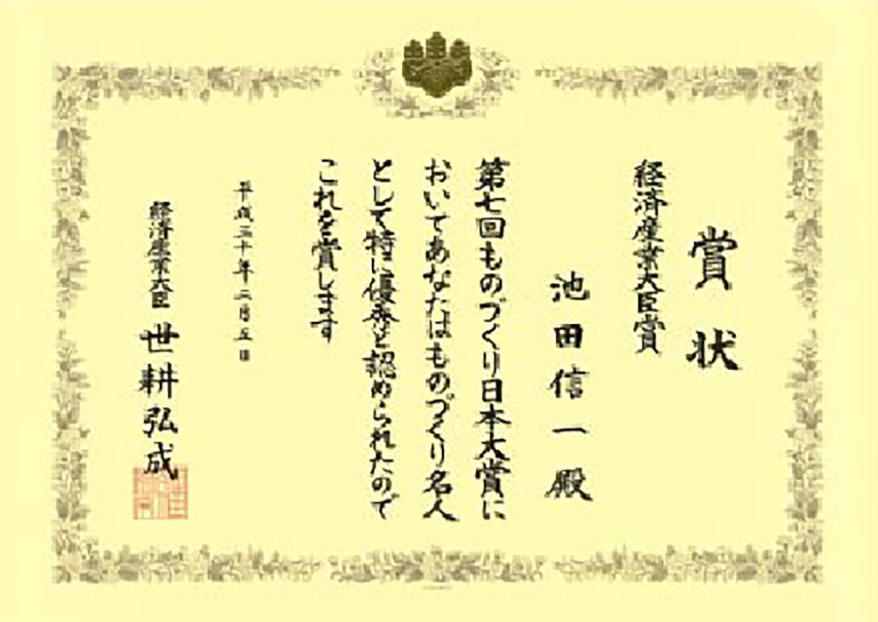 賞状
経済産業大臣賞
池田信一殿
第七回ものづくり日本大賞に
おいてあなたはものづくり名人
として特に優秀と認められたので
これを賞します
平成三十年二月五日
経済産業大臣
世耕弘成